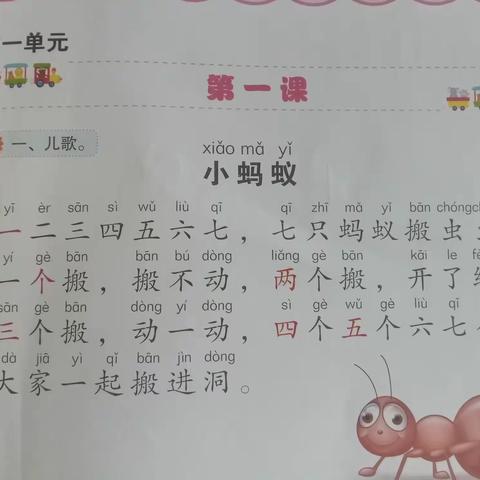 一单元
第一课
一、儿歌。
xiǎo mǎ yǐ
小蚂蚁
yī èr sān sì wǔ liù qī qī zhī mǎ yǐ bān chóngch
一二三四五六七，七只蚂蚁搬虫
yí gè bān bān bú dòng liǎng gè bān kāi le
一个搬，搬不动，两个搬，开了
sān gè bān dòng yí dòng sì gè wǔ gè liù qī
三个搬，动一动，四个五个六七
dà jiā yì qǐ bān jìn dòng
大家一起搬进洞。